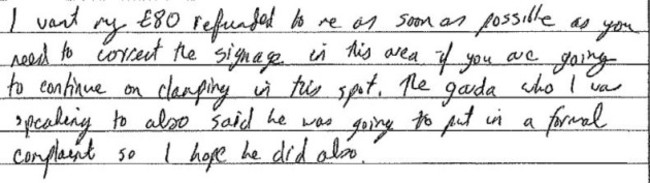 I want my £80 refunded to me as soon as possible as you
need to correct the signage in this area if you are going
to continue on clamping in this spot. The garda who I was
speaking to also said he was going to put in a formal
complaint so I hope he did also.